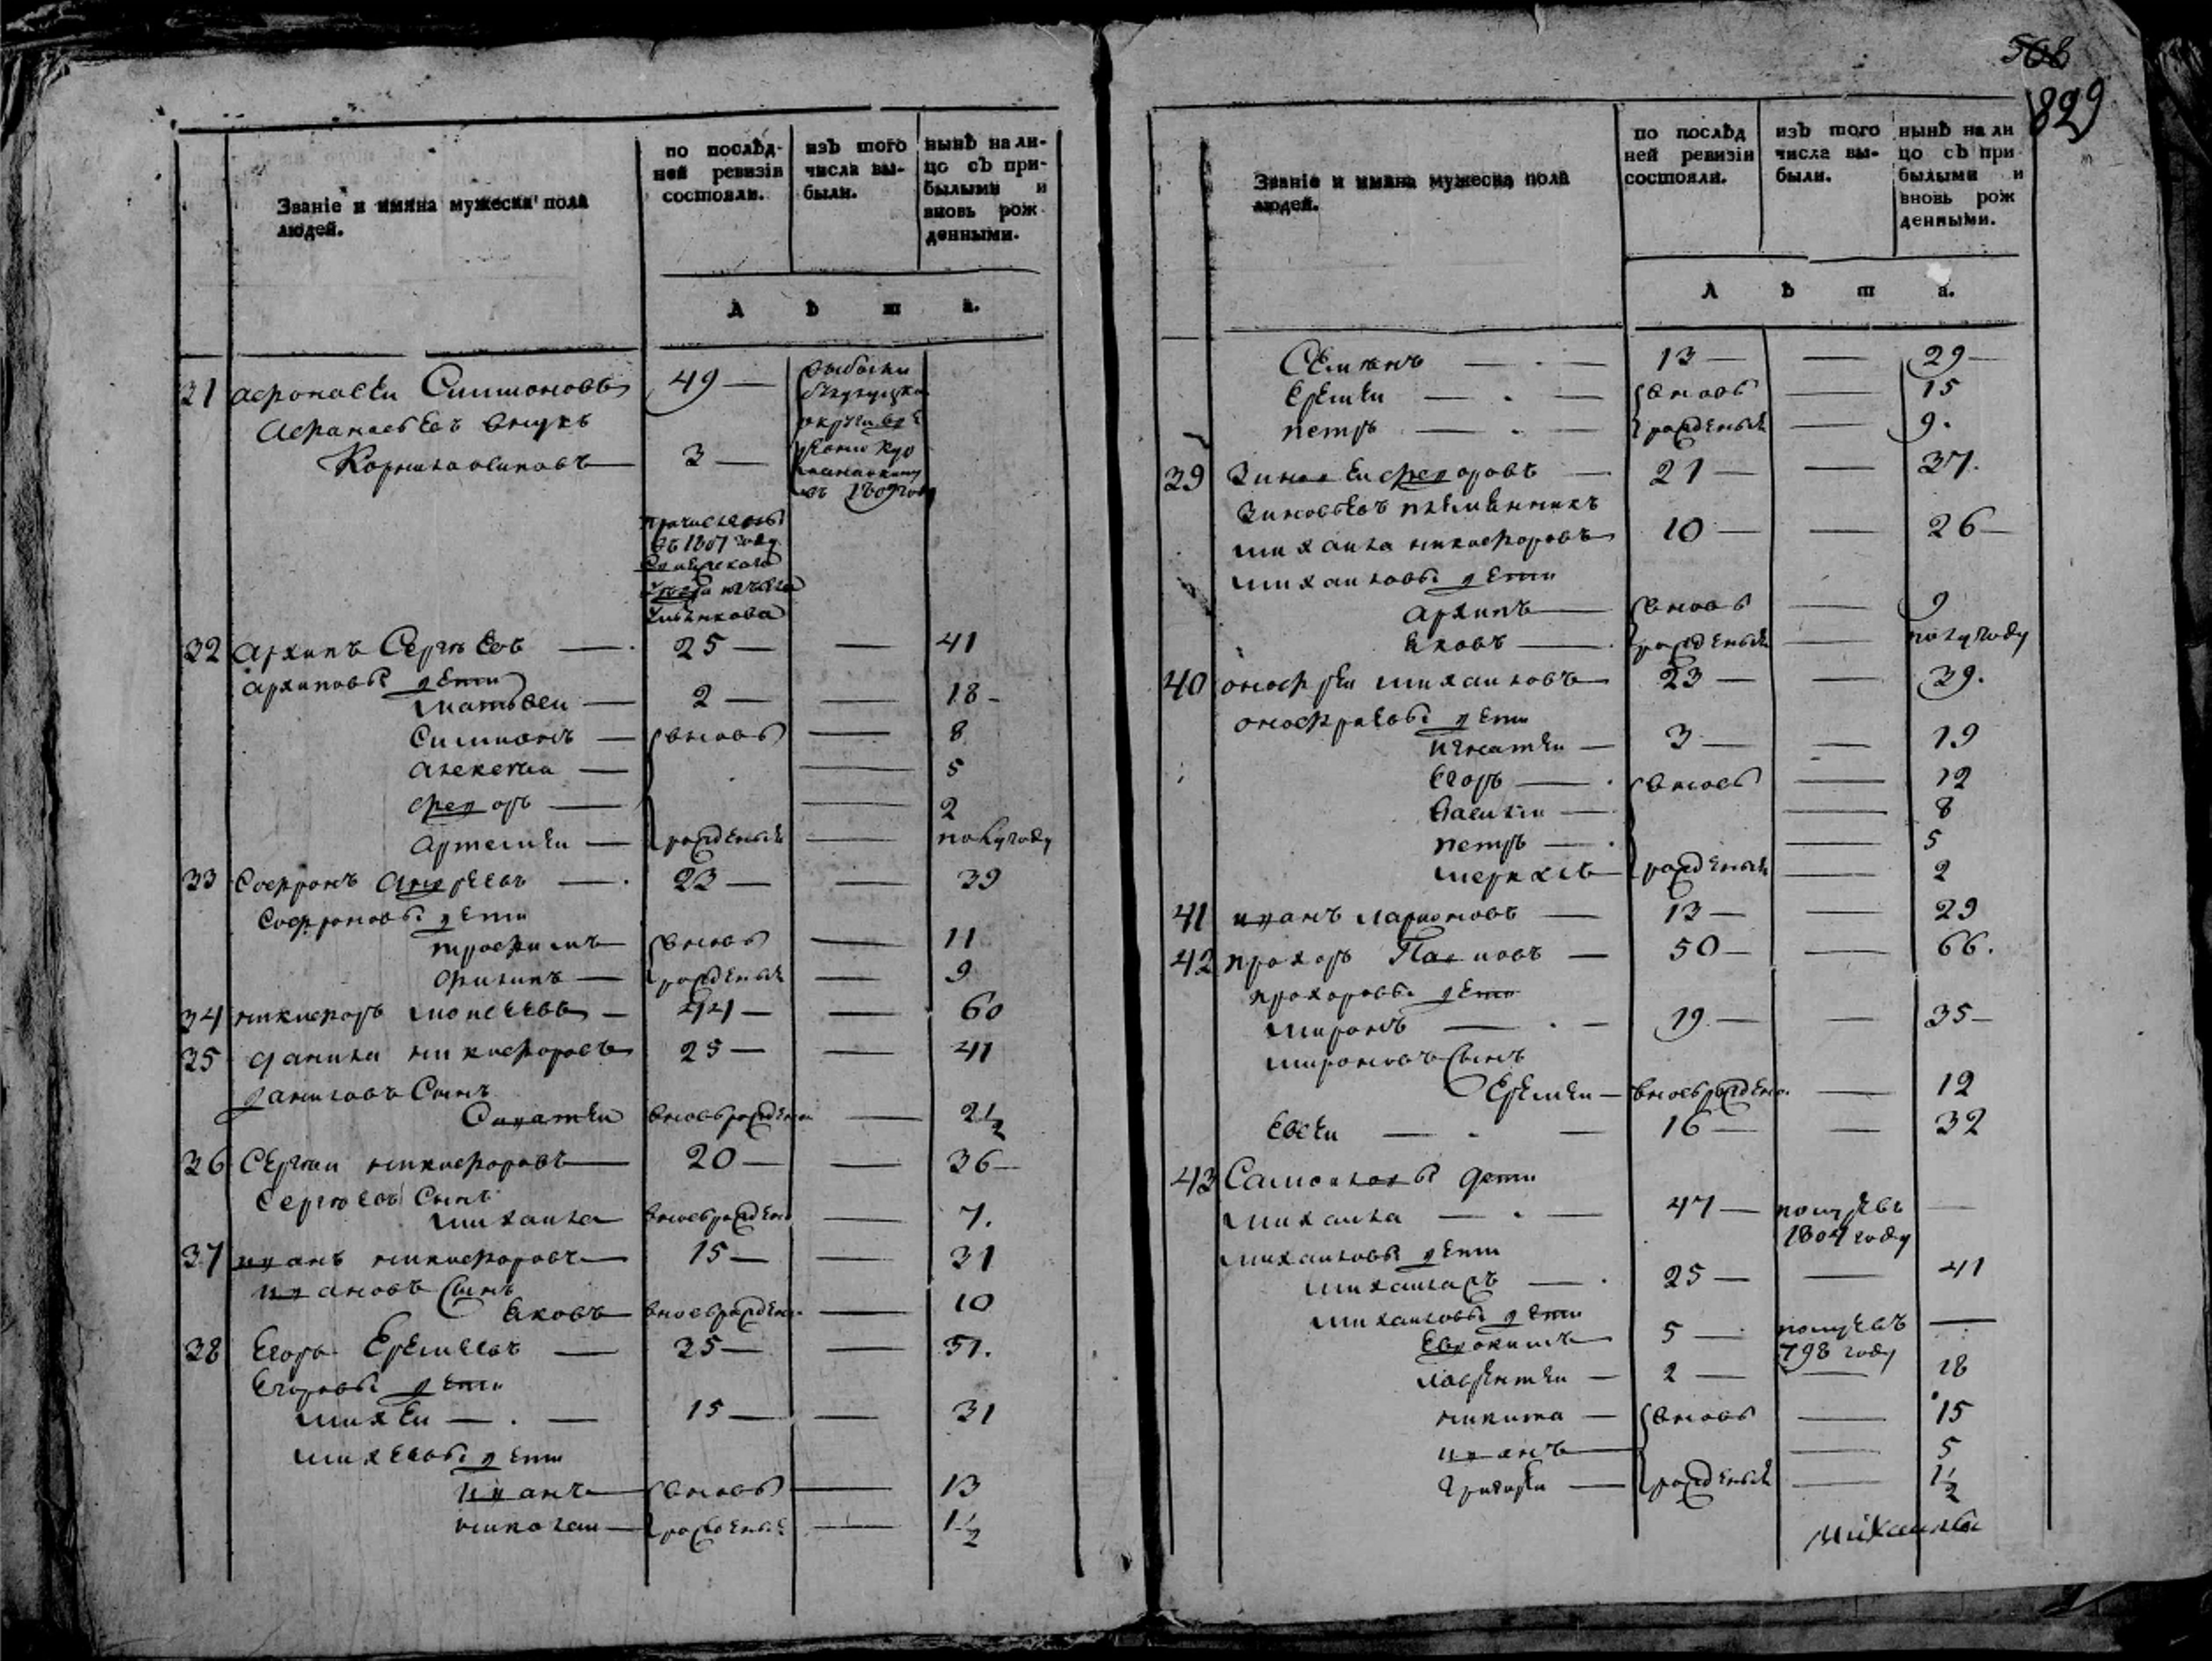 508
829
Званіе и имяна мужеска пола
людей.
по послѣд-
ней ревизіи
состояли.
изъ того
числа вы-
были.
нынѣ на ли-
цо съ при-
былыми и
вновь рож
денными.
Л ѣ т а.
31 афонасеи Симионовъ 49 —
Афанасьевъ внукъ
Корнила осиповъ — 3 —
выбыли
въ 1809 году
причислены
въ 1801 году
32 архипъ Сергѣевъ — 25 — — 41
архиповы дети
матвеи — 2 — — 18 -
симионъ — вновь — 8
алексеи — — 5
федоръ — — 2
артемеи — рожденыя — полугоду
33 Софронъ андреевъ — 23 — — 39
Софроновы дети
трофимъ вновь — 11
филипъ — рожденыя — 9
34 никифоръ моисеевъ — 44 — — 60
35 данила никифоровъ 25 — — 41
даниловъ Сынъ
Игнатеи вновьрожденъ — 2 1/2
36 Сергеи никифоровъ — 20 — — 36 —
Сергѣевъ Сынъ
михаила вновьрожденъ — 7.
37 иванъ никифоровъ — 15 — — 31
ивановъ Сынъ
яковъ — вновьрожденъ — 10
38 Егоръ Еремеевъ — 35 — — 51.
Егоровы дети
михеи — . — 15 — — 31
михеевы дети
иванъ — вновь — 13
николаи — рожденыя — 1 1/2
Званіе и имяна мужеска пола
людей.
по послѣд
ней ревизіи
состояли.
изъ того
числа вы-
были.
нынѣ на ли
цо съ при
былыми и
вновь рож
денными.
Л ѣ т а.
Семионъ — 13 — — 29 —
еремеи — . — вновь — 15
петръ — . — рожденыя — 9.
39 Зиновеи федоровъ — 21 — — 37.
Зиновьевъ племянникъ
михаила никифоровъ 10 — — 26 —
михаиловы дети
архипъ — вновь — 9
яковъ — рожденыя — полугоду
40 онофреи михаиловъ — 23 — — 39.
онофриевы дети
игнатеи — 3 — — 19
егоръ — вновь — 12
василеи — — 8
петръ — — 5
меркулъ — рожденыя — 2
41 иванъ ларионовъ — 13 — — 29
42 прохоръ Павловъ — 50 — — 66.
прохоровы дети
миронъ — . — 19 — — 35 —
мироновъ Сынъ
Еремеи — вновьрожденъ. — 12
евсеи — . — 16 — — 32
43 Самоиловы дети
михаила — . — 47 — помре въ —
1804 году
михаиловы дети
михаиларъ — . 25 — — 41
михаиловы дети
евдокимъ 5 — помре въ —
798 году
лаврентеи — 2 — — 18
никита — вновь — 15
иванъ — — 5
григореи — рожденыя — 1 1/2
Михаилы